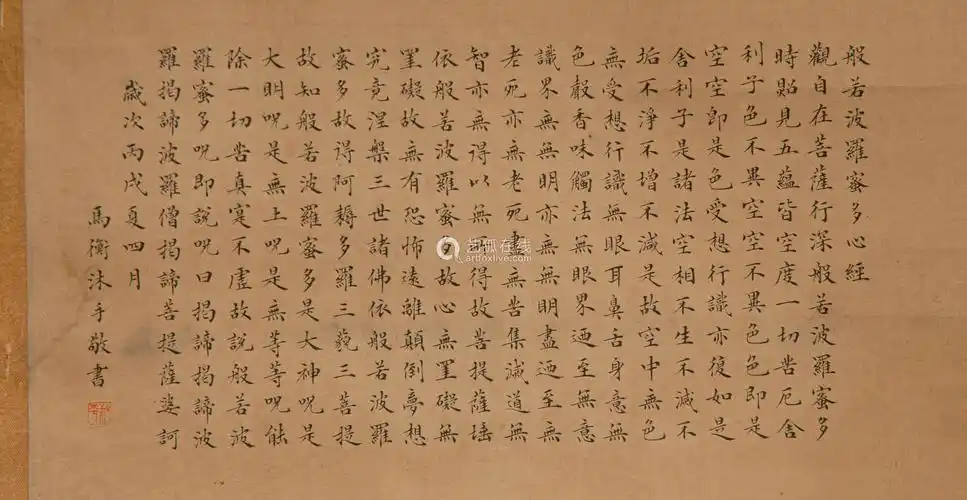 般若波羅蜜多心經
觀自在菩薩行深般若波羅蜜多
時照見五蘊皆空度一切苦厄舍
利子色不異空空不異色色即是
空空即是色受想行識亦復如是
舍利子是諸法空相不生不滅不
垢不淨不增不減是故空中無色
無受想行識無眼耳鼻舌身意無
色聲香味觸法無眼界迺至無意
識界無無明亦無無明盡迺至無
老死亦無老死盡無苦集滅道無
智亦無得以無所得故菩提薩埵
依般若波羅蜜多故心無罣礙無
罣礙故無有恐怖遠離顛倒夢想
究竟涅槃三世諸佛依般若波羅
蜜多故得阿耨多羅三藐三菩提
故知般若波羅蜜多是大神呪是
大明呪是無上呪是無等等呪能
除一切苦真寔不虛故說般若波
羅蜜多呪即說呪曰揭諦揭諦波
羅揭諦波羅僧揭諦菩提薩婆訶
歲次丙戌夏四月
馬衡沐手敬書
artfoxlive.com